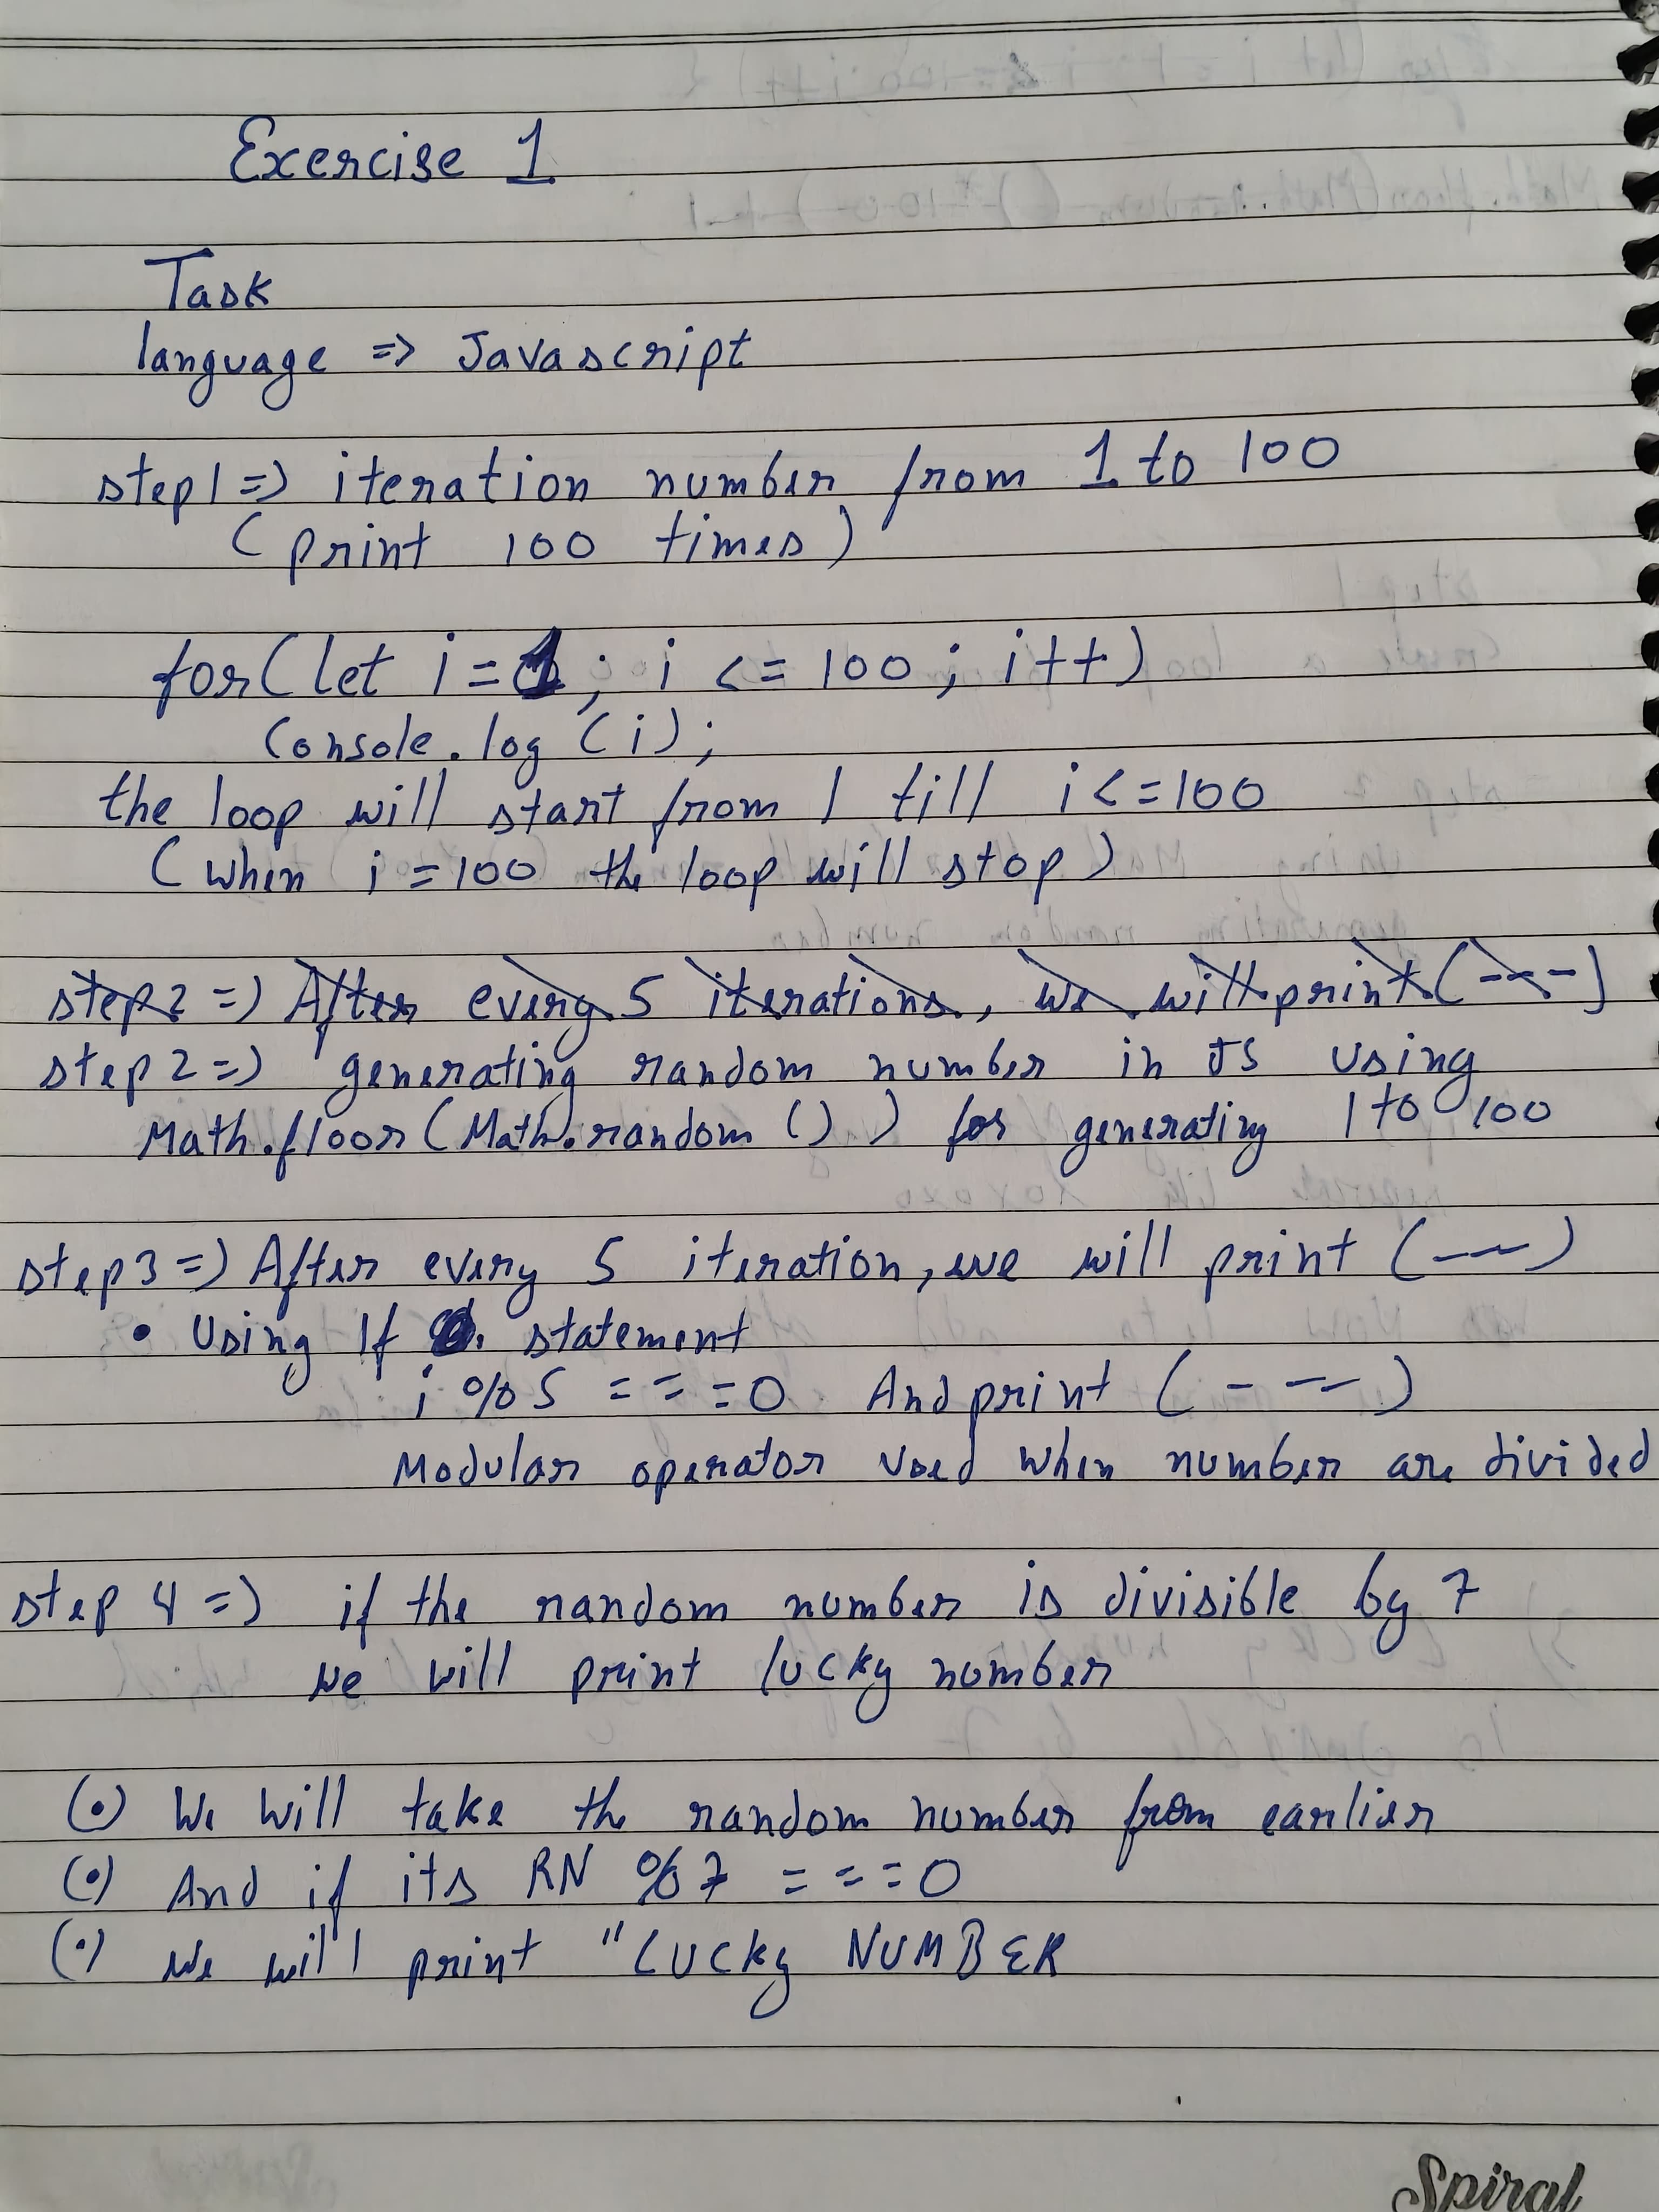 Exercise 1
Task
language => Javascript
step1 => iteration number from 1 to 100
(print 100 times)
for(let i=1; i <= 100; i++)
Console.log (i);
the loop will start from 1 till i<=100
(when i=100 the loop will stop)
step2 => After every 5 iterations, we will print (---)
step2 => generating random number in JS using
Math.floor(Math.random () ) for generating 1 to 100
step3 => After every 5 iteration, we will print (---)
• Using If statement
i %5 === 0 And print (---)
Modular operator used when number are divided
step 4 => if the random number is divisible by 7
we will print lucky number
(•) We will take the random number from earlier
(•) And if its RN %7 === 0
(•) we will print "Lucky NUMBER
Spiral